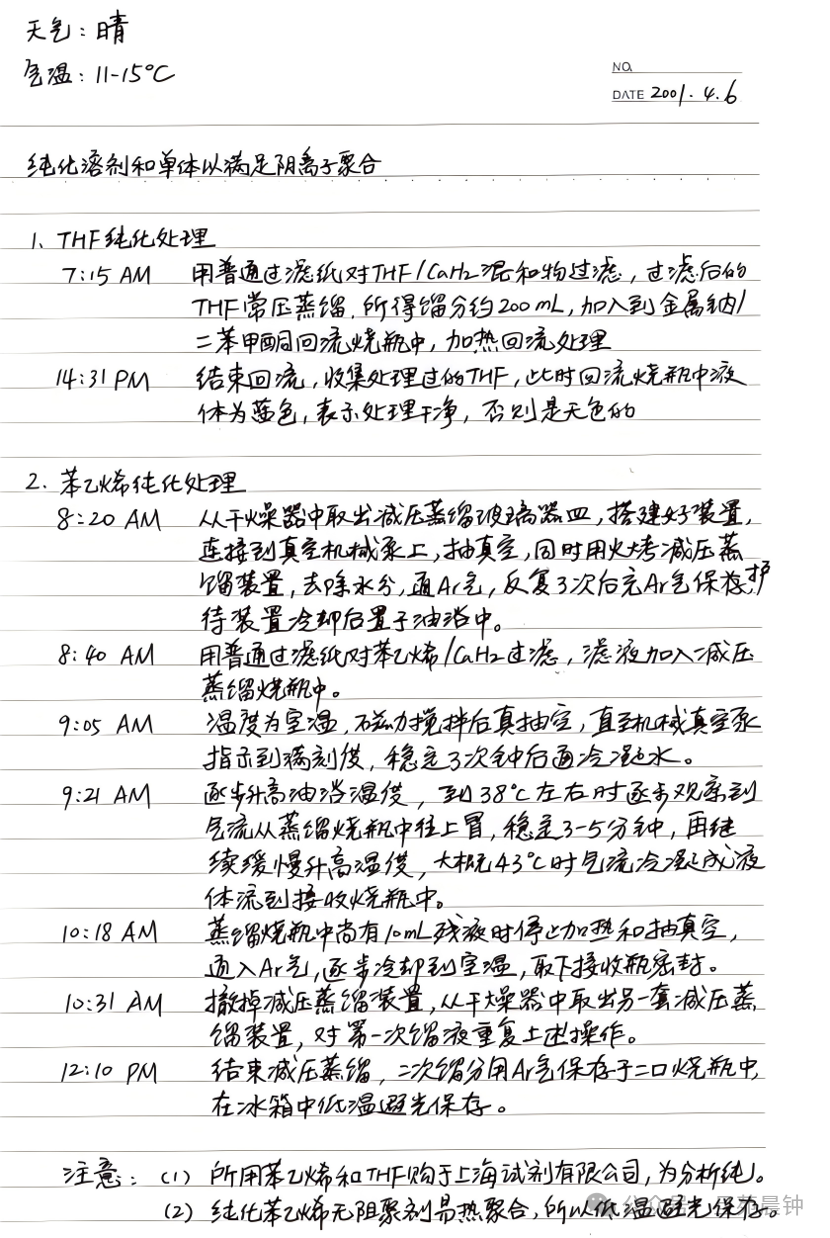 天气：晴
气温：11-15℃
NO.
DATE 2001.4.6
纯化溶剂和单体以满足阴离子聚合
1、THF纯化处理
7:15 AM 用普通过滤纸对THF/CaH₂混和物过滤，过滤后的
THF常压蒸馏，所得馏分约200mL，加入到金属钠/
二苯甲酮回流烧瓶中，加热回流处理
14:31 PM 结束回流，收集处理过的THF，此时回流烧瓶中液
体为蓝色，表示处理干净，否则是无色的
2、苯乙烯纯化处理
8:20 AM 从干燥器中取出减压蒸馏玻璃器皿，搭建好装置，
连接到真空机械泵上，抽真空，同时用火烤减压蒸
馏装置，去除水分，通Ar气，反复3次后充Ar气保护，
待装置冷却后置于油浴中。
8:40 AM 用普通过滤纸对苯乙烯/CaH₂过滤，滤液加入减压
蒸馏烧瓶中。
9:05 AM 温度为室温，磁力搅拌后真抽空，直至机械真空泵
指示到满刻度，稳定3分钟后通冷凝水。
9:21 AM 逐步升高油浴温度，到38℃左右时逐步观察到
气流从蒸馏烧瓶中往上冒，稳定3-5分钟，再继
续缓慢升高温度，大概43℃时气流冷凝成液
体流到接收烧瓶中。
10:18 AM 蒸馏烧瓶中尚有10mL残液时停止加热和抽真空，
通入Ar气，逐步冷却到室温，取下接收瓶密封。
10:31 AM 撤掉减压蒸馏装置，从干燥器中取出另一套减压蒸
馏装置，对第一次馏液重复上述操作。
12:10 PM 结束减压蒸馏，二次馏分用Ar气保存于二口烧瓶中，
在冰箱中低温避光保存。
注意：(1) 所用苯乙烯和THF购于上海试剂有限公司，为分析纯。
(2) 纯化苯乙烯无阻聚剂易热聚合，所以低温避光保存。